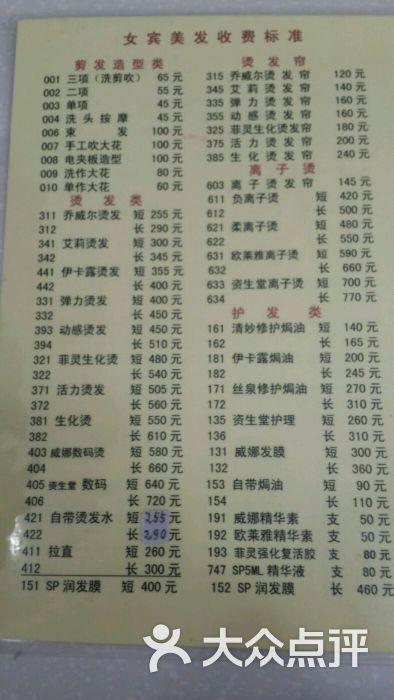 女宾美发收费标准
剪发造型类
001 三项(洗剪吹) 65 元
002 二项 55 元
003 单项 45 元
004 洗头按摩 45 元
006 束发 100 元
007 手工吹大花 100 元
008 电夹板造型 100 元
009 洗作大花 80 元
010 单作大花 60 元
烫发类
311 乔威尔烫发 短 255 元
312 长 290 元
341 艾莉烫发 短 300 元
342 长 345 元
441 伊卡露烫发 短 355 元
442 长 400 元
331 弹力烫发 短 400 元
332 长 450 元
393 动感烫发 短 450 元
394 长 510 元
321 菲灵生化烫 短 480 元
322 长 540 元
371 活力烫发 短 505 元
372 长 560 元
381 生化烫 短 550 元
382 长 610 元
403 威娜数码烫 短 580 元
404 长 660 元
405 资生堂 数码 短 640 元
406 长 720 元
421 自带烫发水 短 255 元
422 长 290 元
411 拉直 短 260 元
412 长 300 元
151 SP 润发膜 短 400 元
烫发帘
315 乔威尔烫发帘 120 元
345 艾莉烫发帘 140 元
335 弹力烫发帘 160 元
355 动感烫发帘 160 元
325 菲灵生化烫发帘 180 元
375 活力烫发帘 200 元
385 生化烫发帘 240 元
离子烫
603 离子烫发帘 145 元
611 负离子烫 短 420 元
612 长 500 元
621 柔离子烫 短 480 元
622 长 550 元
631 欧莱雅离子烫 短 590 元
632 长 660 元
633 资生堂离子烫 短 700 元
634 长 770 元
护发类
161 清妙修护焗油 短 140 元
162 长 165 元
181 伊卡露焗油 短 200 元
182 长 245 元
171 丝泉修护焗油 短 270 元
172 长 310 元
135 资生堂护理 短 260 元
136 长 310 元
131 威娜发膜 短 300 元
132 长 360 元
153 自带焗油 短 90 元
154 长 110 元
191 威娜精华素 支 50 元
192 欧莱雅精华素 支 50 元
193 菲灵强化复活胶 支 80 元
747 SP5ML 精华液 支 80 元
152 SP 润发膜 长 460 元
大众点评